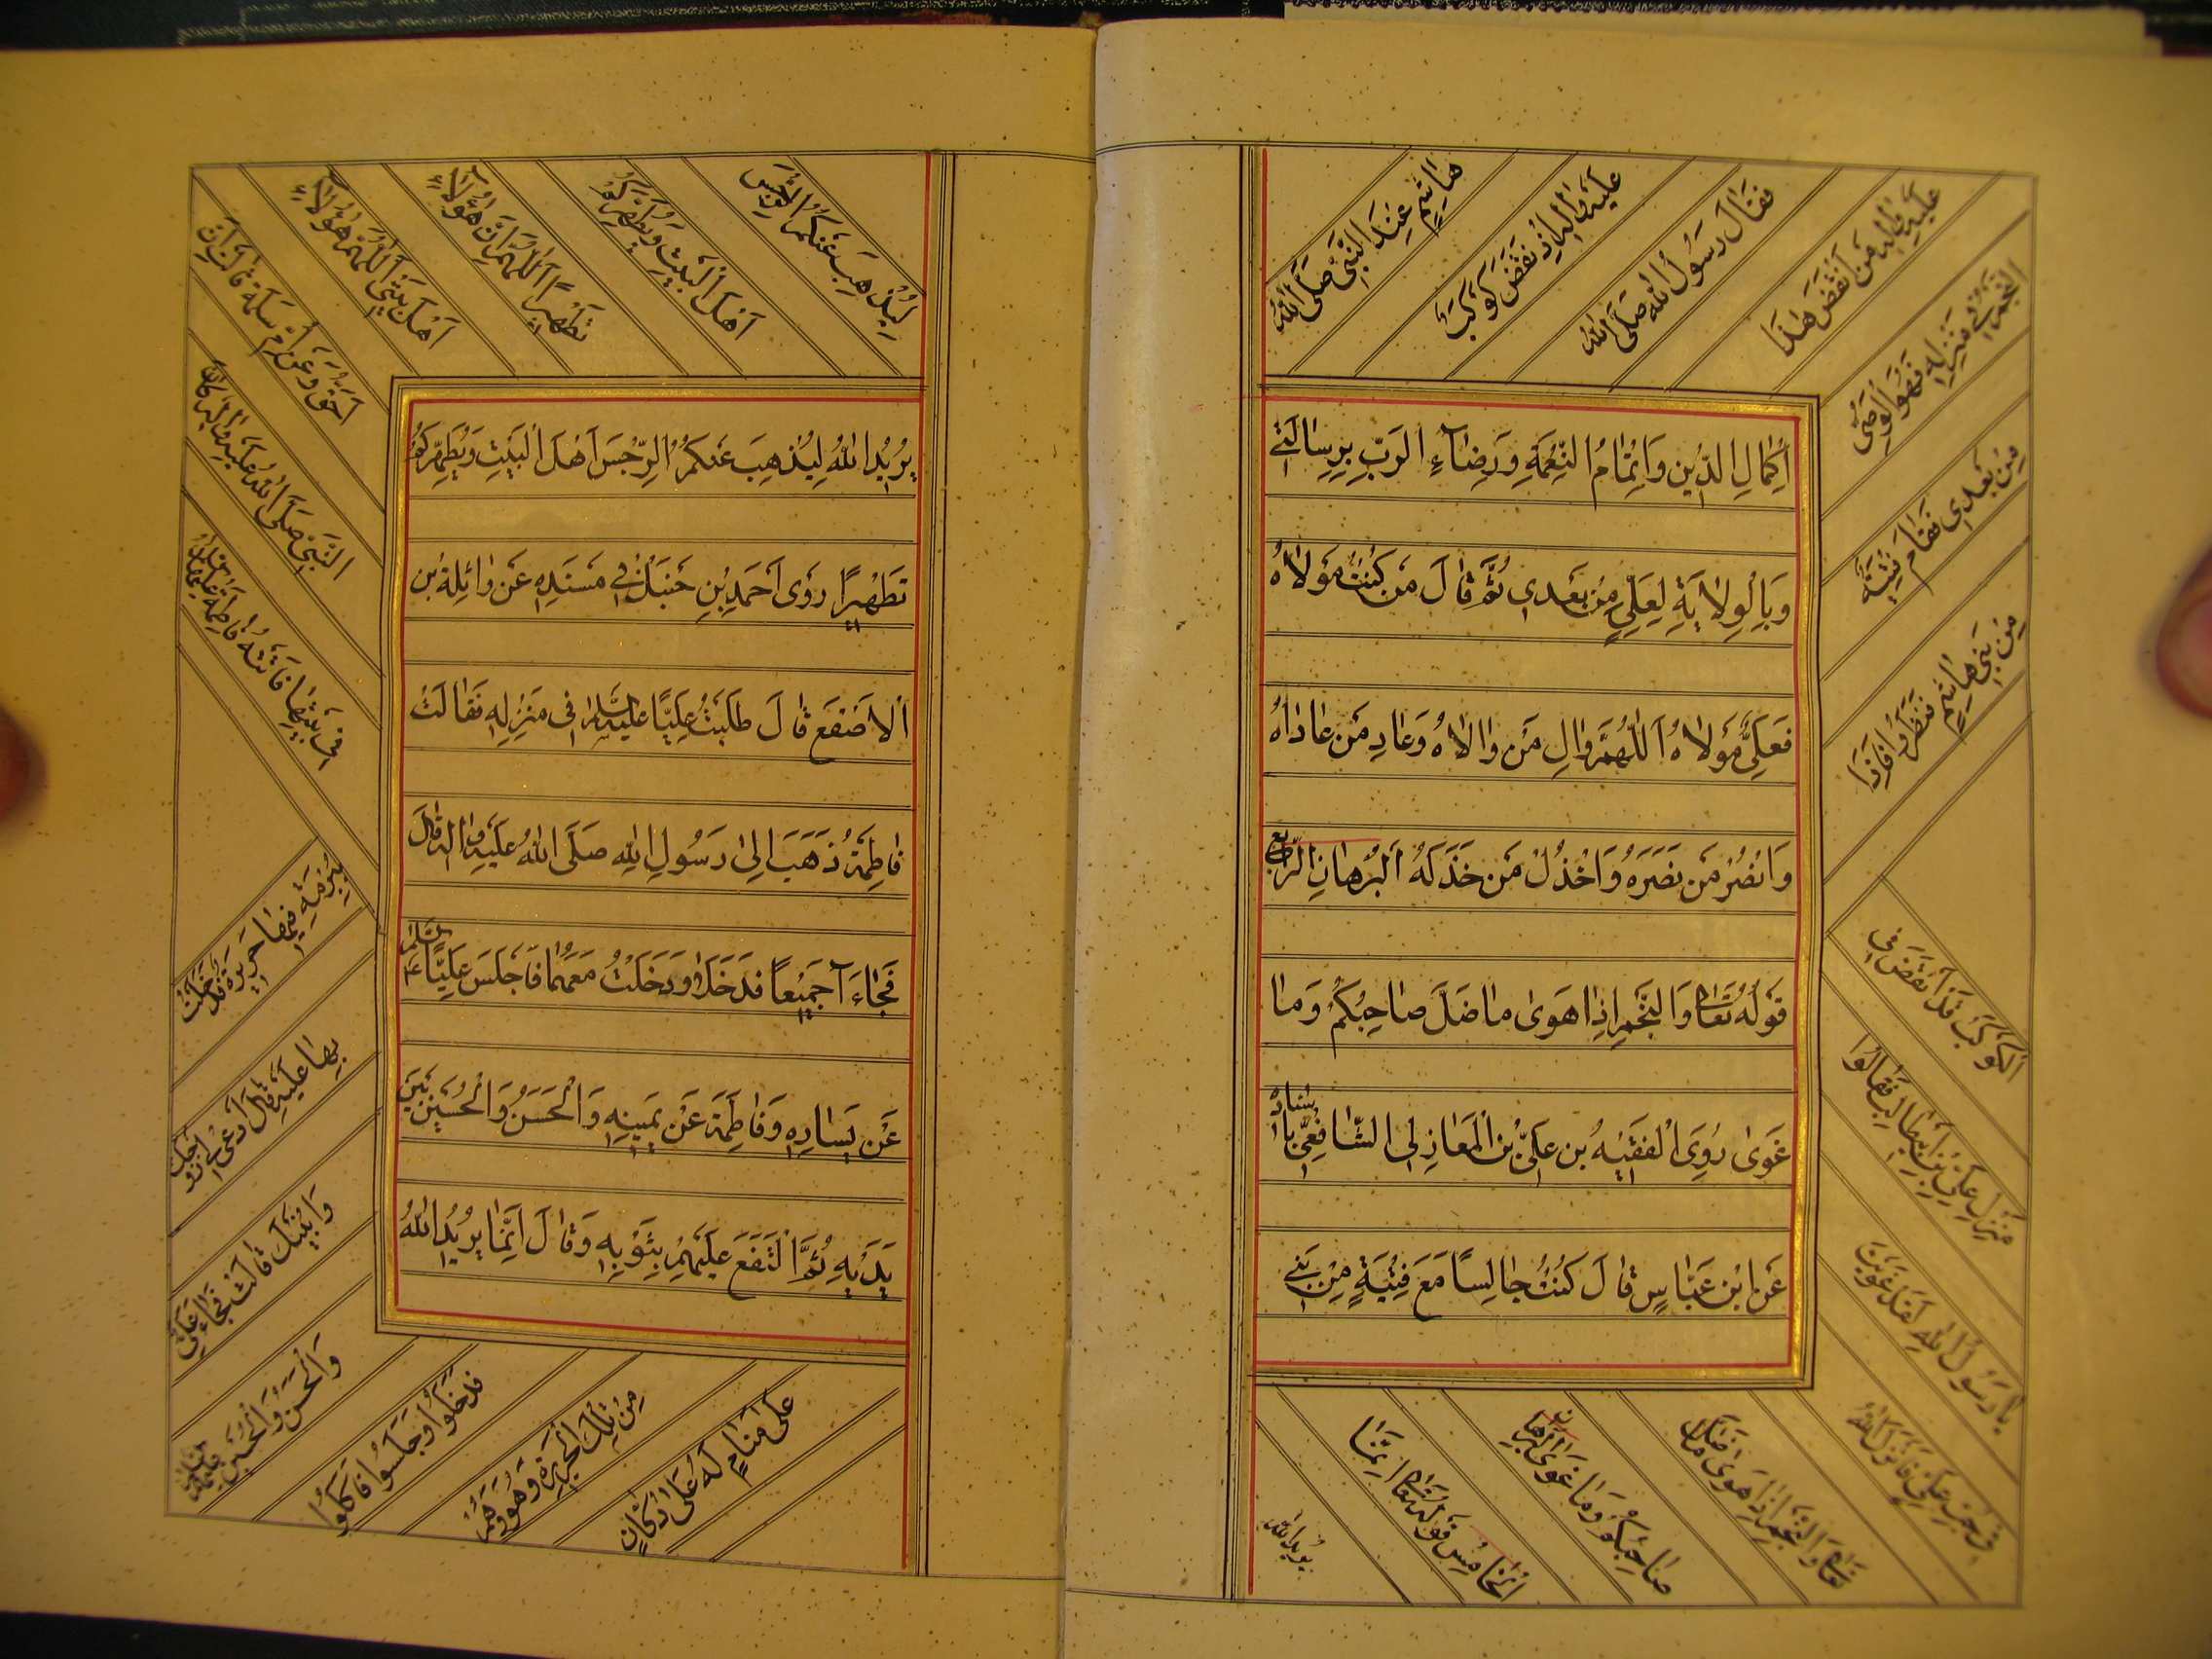 أكمالِ الدّينِ وَاتِمْامُ النِّعْمَةِ وَرِضٰآءِ الرَبِّ بِرِسٰالَتے
وَبِالْوِلاٰيَةِ لِعَلِيٍ مِنْ بَعْدي ثُمَّ قٰالَ مَن كُنْتُ مَوْلاٰهُ
فَعَلِيٌّ مَوْلاٰهُ اَللّٰهُمَّ وٰالِ مَن وٰالاٰهُ وَعٰادِ مَن عٰادٰاهُ
وَانْصُرْ مَن نَصَرَهُ وَاخْذُلْ مَن خَذَلَهُ اَلبُرْهانِ الرّابع
قَولُهُ تَعٰالى وَالنَّجْمِ اِذٰا هَوىٰ مٰا ضَلَّ صٰاحِبُكُمْ وَمٰا
غَوىٰ رُوِيَ الْفَقيٖهُ بن عَلِيّ بْنِ الْمَعٰازِلي الشّٰافِعِيّ بِاسْنٰادِهِ
عَنِ ابْنِ عَبّٰاسٍ قٰالَ كُنْتُ جٰالِسًا مَعَ فِتْيَةٍ مِنْ بَنے
هٰاشِمٍ عِنْدَ النَّبِيّ صَلَّى اللّٰهُ
عَلَيْهِ وَاٰلِهِ اِذ نقَضَ كَوْكَبٌ
فَقٰالَ رَسُولُ اللّٰه صَلَّى اللّٰهُ
عَلَيْهِ وَاٰلِهِ مَنِ انْقَضَ هٰذَا
النَّجْمُ في مَنْزِلِهِ فَهُوَ الْوَصِىُّ
مِنْ بَعْدي فَقٰامَ فِتْيَةٌ
مِنْ بَني هٰاشِمٍ فَنَظَرُوا فَاِذَا
الكَوْكَبُ قَدْ اَنْقَضَ في
مَنْزِلِ عَلِيِّ بْنِ اَبيطٰالِبٍ فَقٰالُوا
يٰا رَسُولُ اللّٰهِ لَقَدْ غَوَيْتَ
في حُبِّ عَلِيّ فَاَنْزَلَ اللّٰهُ
تَعٰالى وَالنَّجْمِ اِذٰا هَوىٰ مٰا ضَلَّ
صٰاحِبُكُمْ وَمٰا غَوىٰ البرهان
الخٰامِسُ قَولُهُ تَعٰالى اِنَّمٰا
يُريدُ اللّٰهُ
يُريٖدُ اللّٰهُ لِيُذهِبَ عَنْكُمُ الرِّجْسَ اَهْلَ الْبَيْتِ وَيُطَهِّرَكُمْ
تَطْهيٖرًا رَوٰى اَحمَدِ بْنِ حَنْبَلْ في مَسنَدِهِ عَن وٰائِلَةِ بْن
ألاٰصْقَع قٰالَ طَلَبْتُ عَلِيًّا عَلَيْهِ السَّلٰام في مَنْزِلِهِ فَقٰالَتْ
فٰاطِمَةُ ذَهَبَ اِلىٰ رَسُولِ اللّٰهِ صَلَّى اللّٰهُ عَلَيْهِ وَاٰلِهِ قٰالَ
فَجٰاءَآ جَميٖعاً فَدَخَلاٰ وَدَخَلْتُ مَعَهُمٰا فَاَجْلَسَ عَلِيًّا عليه السلام
عَنْ يَسٰارِهِ وَفٰاطِمَةَ عَنْ يَميٖنِهِ وَالْحَسَنُ وَالْحُسَيْنِ بَيْنَ
يَدَيْهِ ثُمَّ الْتَفَعَ عَلَيْهِمْ بِثَوْبِهِ وَقٰالَ اِنَّمٰا يُريٖدُ اللّٰهُ
لِيُذْهِبَ عَنكُمُ الرِّجْسَ
اَهْلَ الْبَيْتِ وَيُطَهِّرَكُمْ
تَطْهيٖراً اَللّٰهُمَّ اِنَّ هٰؤُلآءِ
اَهْلُ بَيْتي اَللّٰهُمَّ هٰؤُلآءِ
اَحَقُّ وَعَن اُمِّ سَلَمَةَ قٰالَت اِنَّ
النَّبِيّ صَلَّى اللّٰهُ عَلَيْهِ وَاٰلِهِ كٰانَ
في بَيْتِهٰا فَاَتَتْهُ فٰاطِمَةُ عَلَيْهَا السَّلٰامُ
بِبُرْمَةٍ فيٖهٰا حَريٖرَةٌ فَدَخَلَتْ
بِهٰا عَلَيْهِ قٰالَ اَدْعى لي زَوْجَكِ
وَابْنَيْكِ قٰالَتْ فَجٰاءَ عَلِيّ
وَالْحَسَنُ وَالْحُسَيْنُ
فَدَخَلُوا وَجَلَسُوا فَاَكَلُوا
مِن تِلْكَ الْحَريرَةِ وَهُوَ وَهُمْ
عَلىٰ مَنٰامٍ لَهُ عَلىٰ دُكّٰانٍ